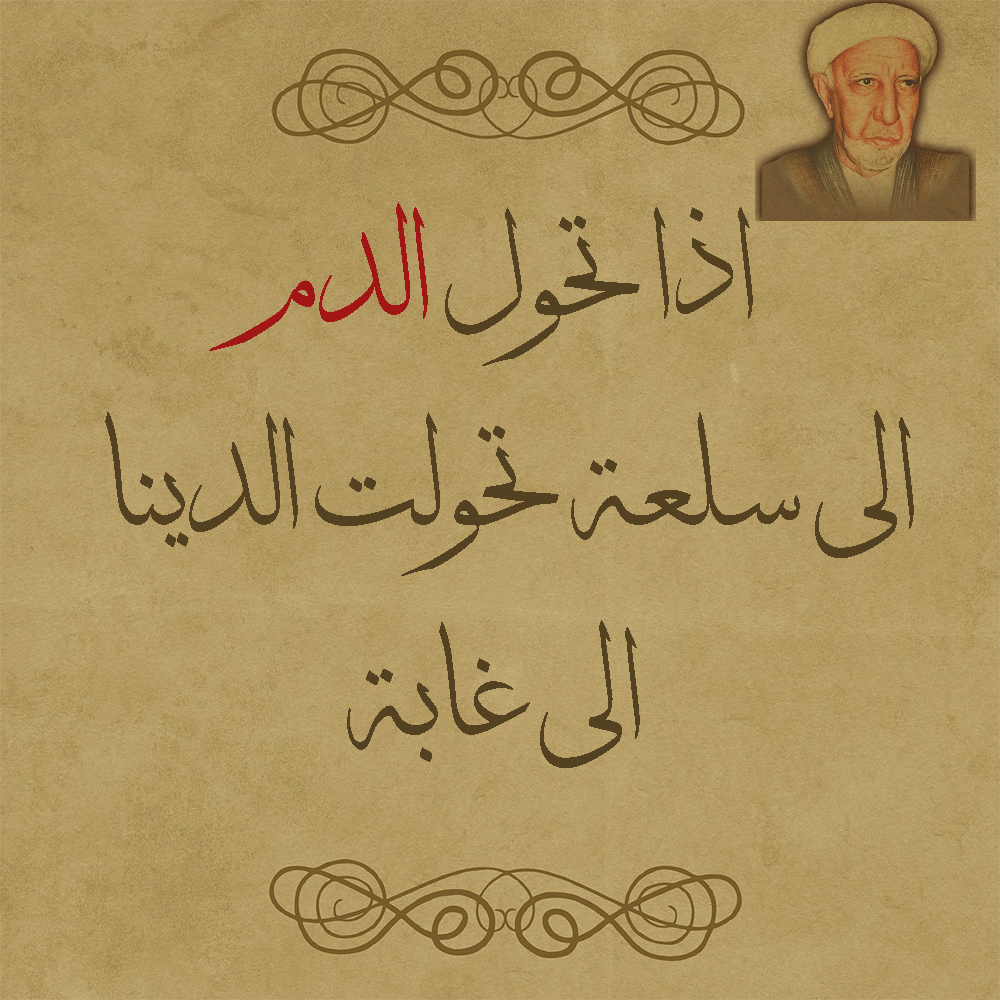 اذا تحول الدم
الى سلعة تحولت الدينا
الى غابة